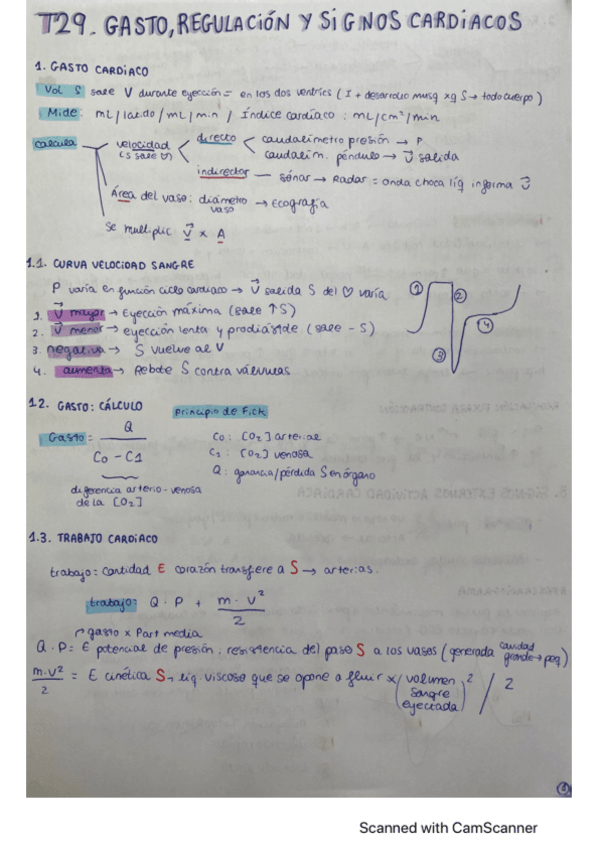 T29. GASTO, REGULACIÓN Y SIGNOS CARDIACOS
1. GASTO CARDIACO
Vol S sale V durante eyección = en los dos ventríc (I + desarrollo musq xq S → todo cuerpo)
Mide: mL/latido / mL/min / Índice cardiaco: mL/cm²/min
calcula
velocidad (S sale ♡)
directo
caudalímetro presión → P
caudalím. péndulo → V⃗ salida
indirecto — sónar → Radar = onda choca líq informa V⃗
Área del vaso: diámetro vaso → Ecografía
se multiplic V⃗ x A
1.1. CURVA VELOCIDAD SANGRE
P varía en función ciclo cardiaco → V⃗ salida S del ♡ varía
1. V⃗ mayor → Eyección máxima (sale ↑S)
2. V⃗ menor → eyección lenta y prodiástole (sale - S)
3. negativa → S vuelve al V
4. aumenta → Rebote S contra válvulas
① ② ③ ④
1.2. GASTO: CÁLCULO
Principio de Fick
Gasto = Q / C0 - C1
C0: [O2] arterial
C1: [O2] venosa
Q: ganancia/pérdida S en órgano
diferencia arterio-venosa de la [O2]
1.3. TRABAJO CARDIACO
trabajo: cantidad E corazón transfere a S → arterias.
trabajo: Q · P + m · v² / 2
gasto x Part media
Q · P = E potencial de presión: resistencia del paso S a los vasos (generada caudad grande → peq)
m·v² / 2 = E cinética S → líq. viscoso que se opone a fluir x (volumen sangre eyectada)² / 2
①
Scanned with CamScanner